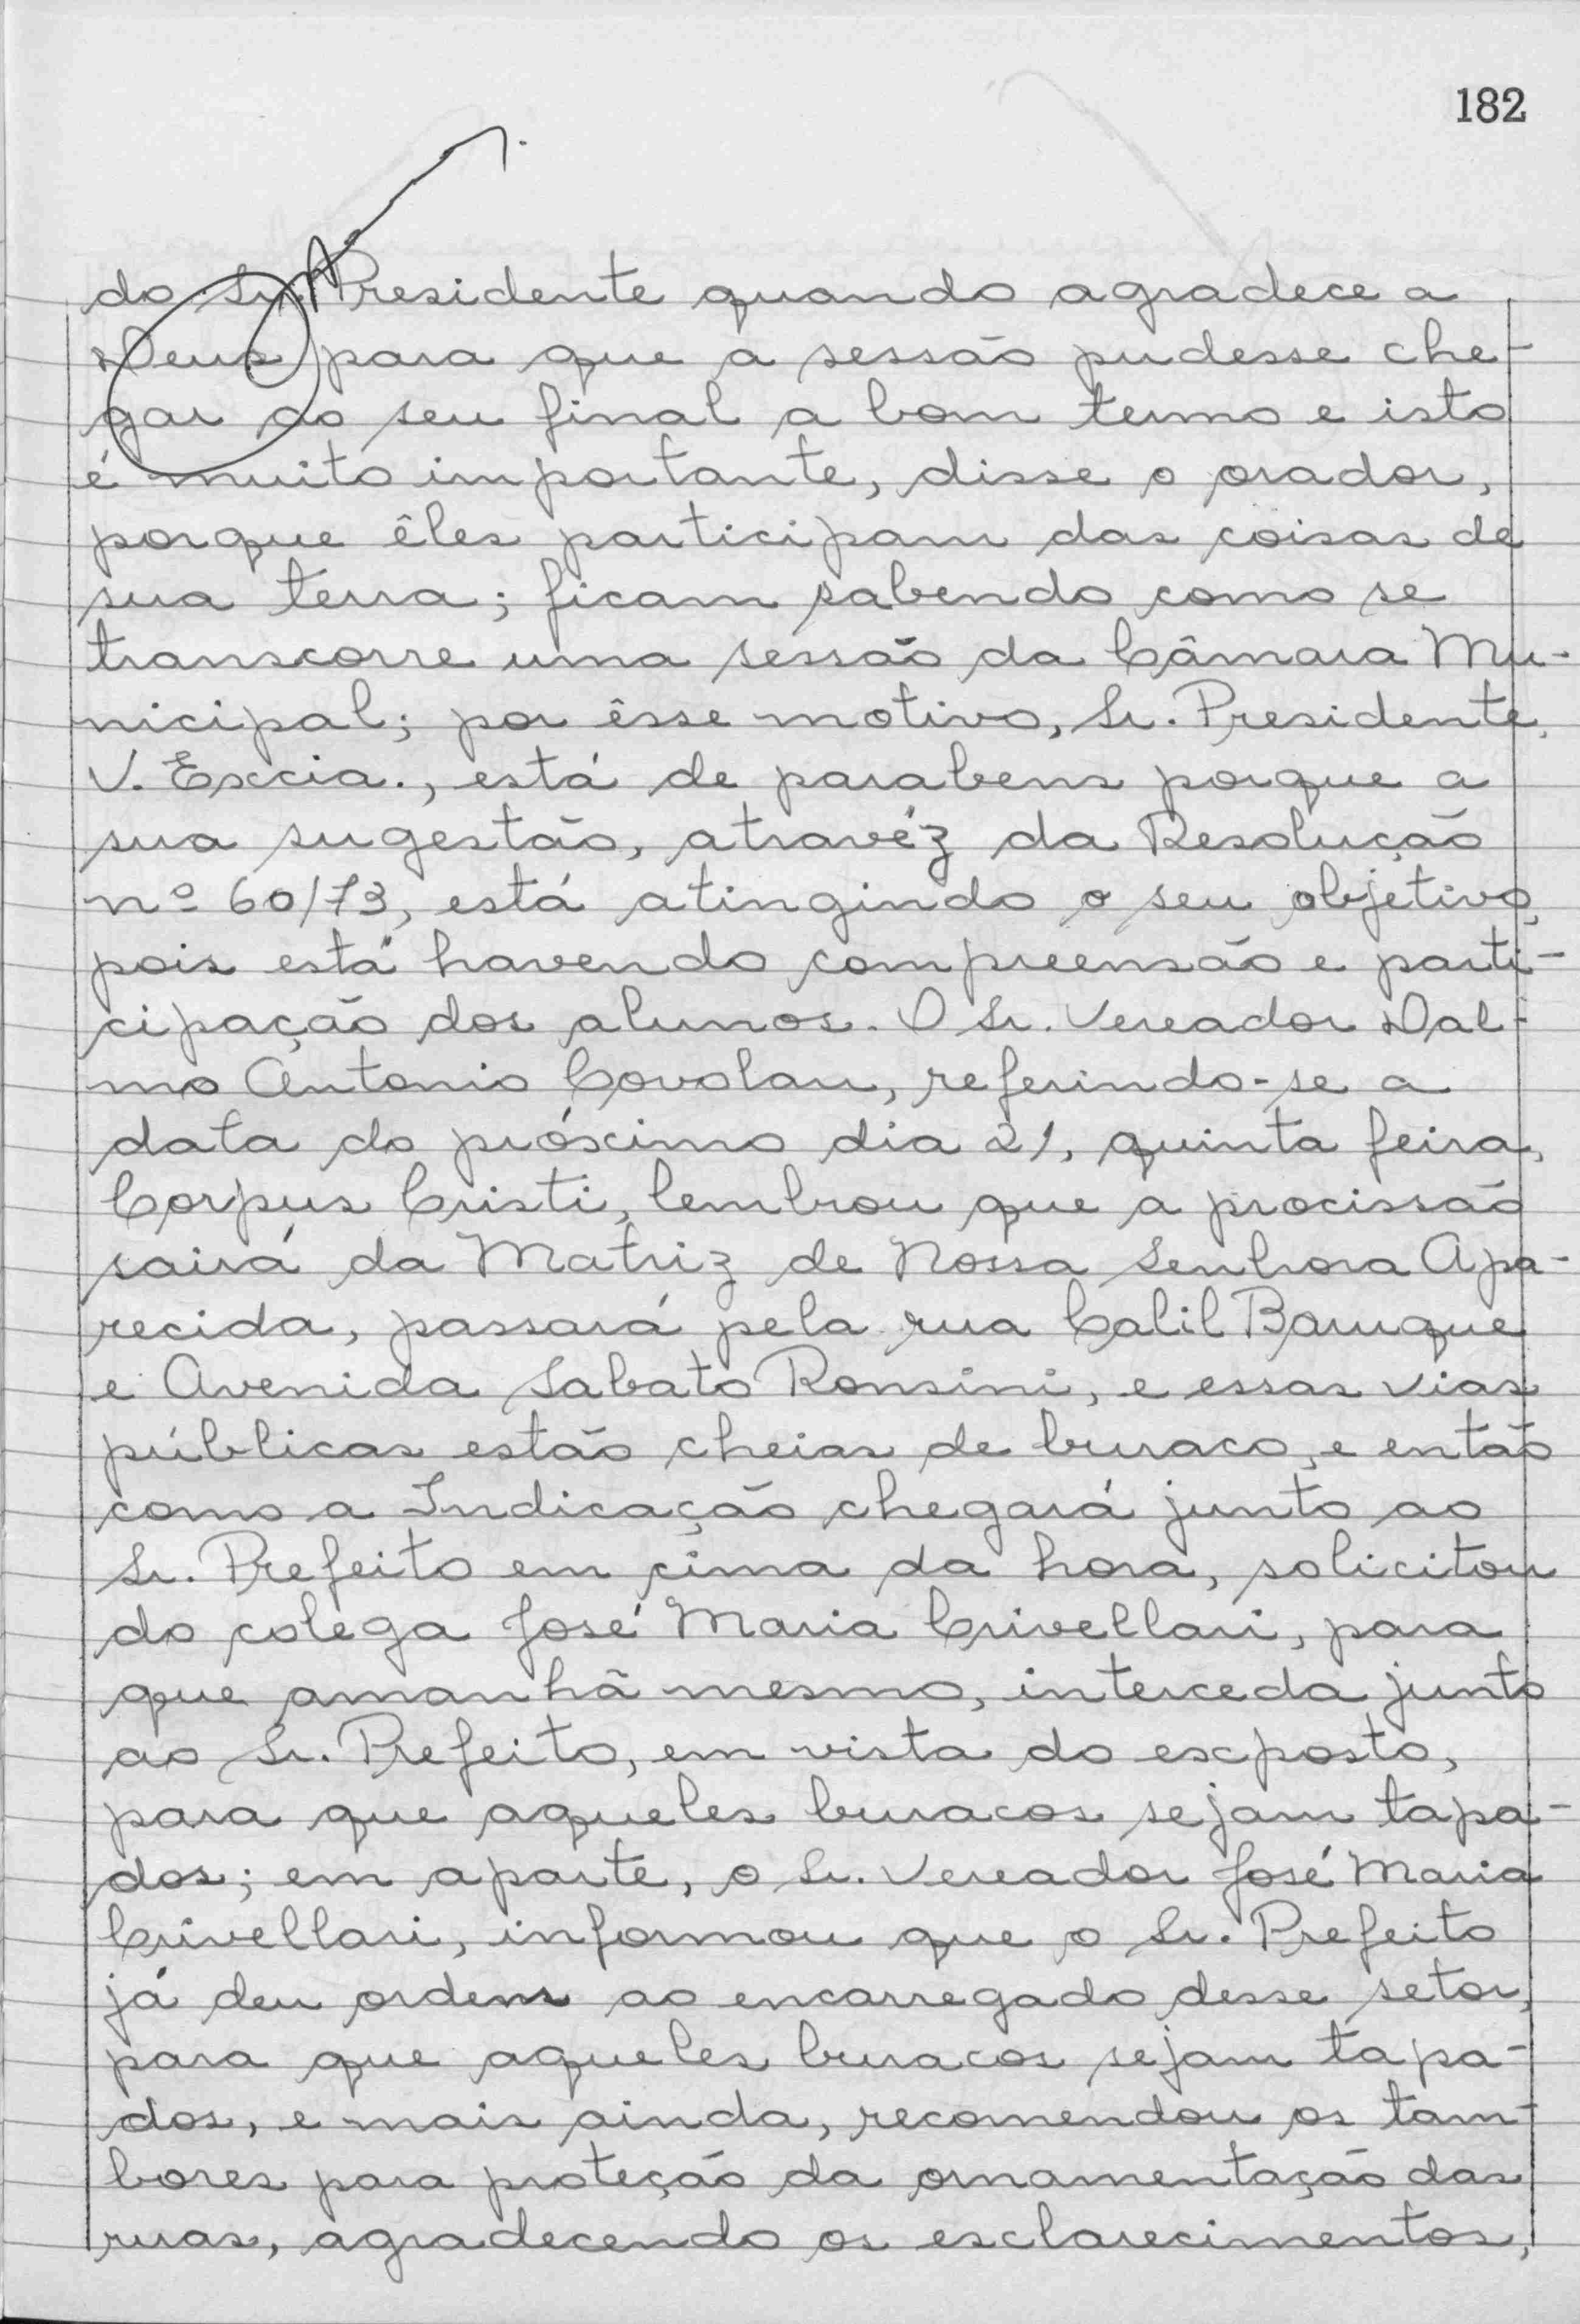 182
do Sr. Presidente quando agradece a
Deus para que a sessão pudesse che-
gar ao seu final a bom termo e isto
é muito importante, disse o orador,
porque êles participam das coisas de
sua terra; ficam sabendo como se
transcorre uma sessão da Câmara Mu-
nicipal; por êsse motivo, Sr. Presidente,
V. Excia., está de parabens porque a
sua sugestão, atravéz da Resolução
nº 60/73, está atingindo o seu objetivo,
pois está havendo compreensão e parti-
cipação dos alunos. O Sr. Vereador Dal-
mo Antonio Covolan, referindo-se a
data do próximo dia 21, quinta feira,
Corpus Cristi, lembrou que a procissão
sairá da Matriz de Nossa Senhora Apa-
recida, passará pela rua Calil Baruque
e Avenida Sabato Ronsini, e essas vias
públicas estão cheias de buraco, e então
como a Indicação chegará junto ao
Sr. Prefeito em cima da hora, solicitou
do colega José Maria Crivellari, para
que amanhã mesmo, interceda junto
ao Sr. Prefeito, em vista do exposto,
para que aqueles buracos sejam tapa-
dos; em aparte, o Sr. Vereador José Maria
Crivellari, informou que o Sr. Prefeito
já deu ordens ao encarregado desse setor,
para que aqueles buracos sejam tapa-
dos, e mais ainda, recomendou os tam-
bores para proteção da ornamentação das
ruas, agradecendo os esclarecimentos,